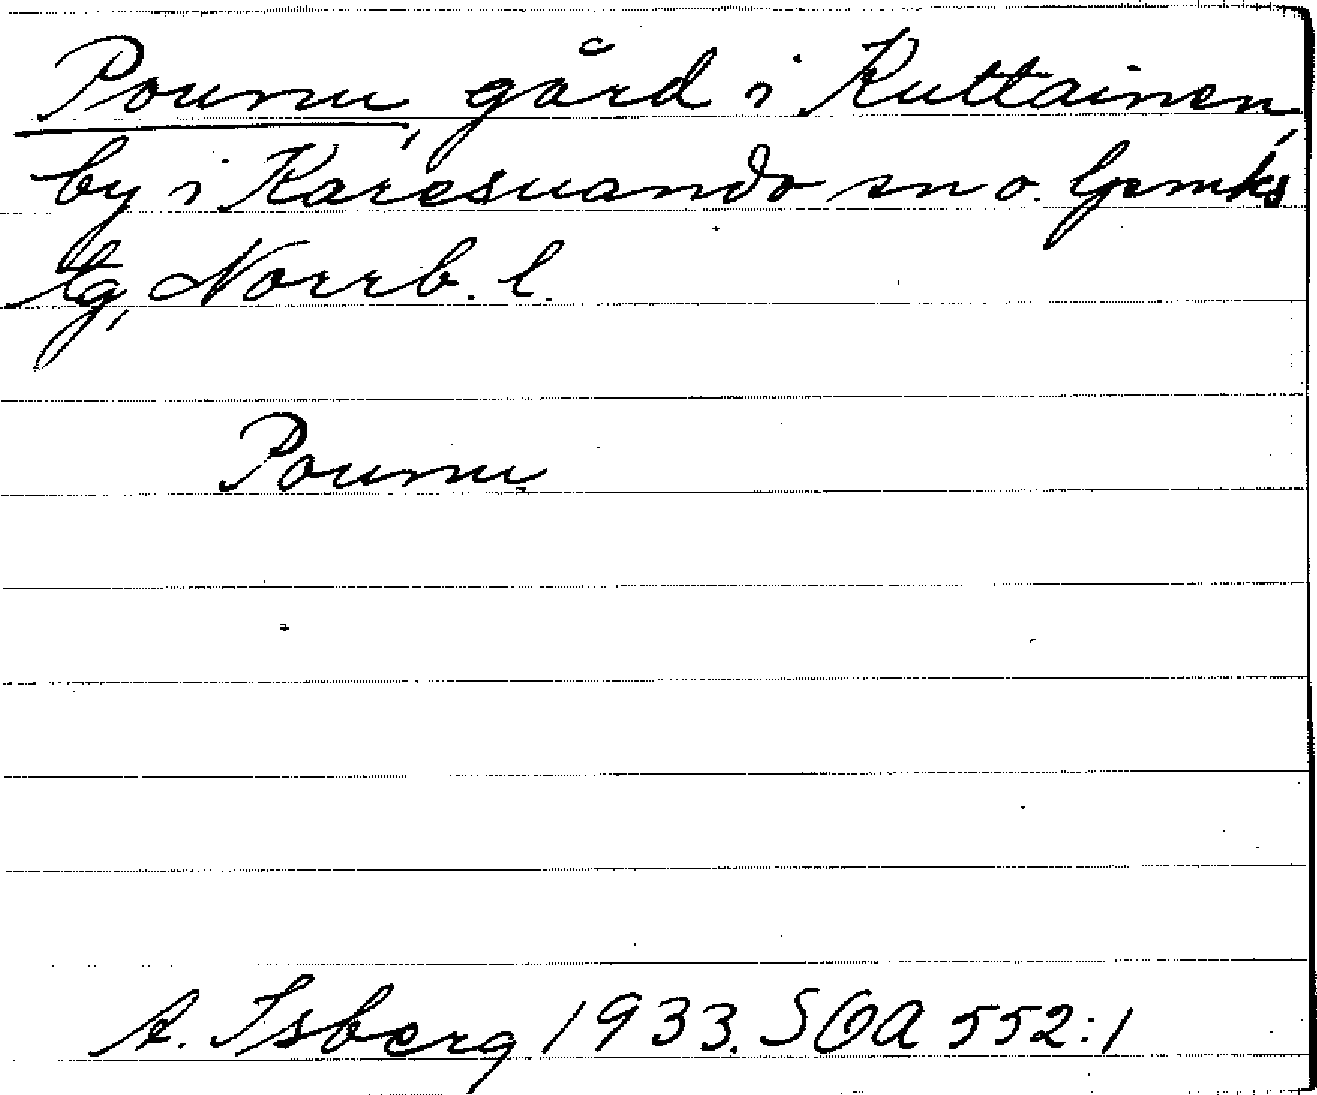 Pounu, gård i Kuttainen,
by i Karesuando sn o. lpmks
tg, Norrb. l.
Pounu
A. Isberg 1933. SOA 552:1